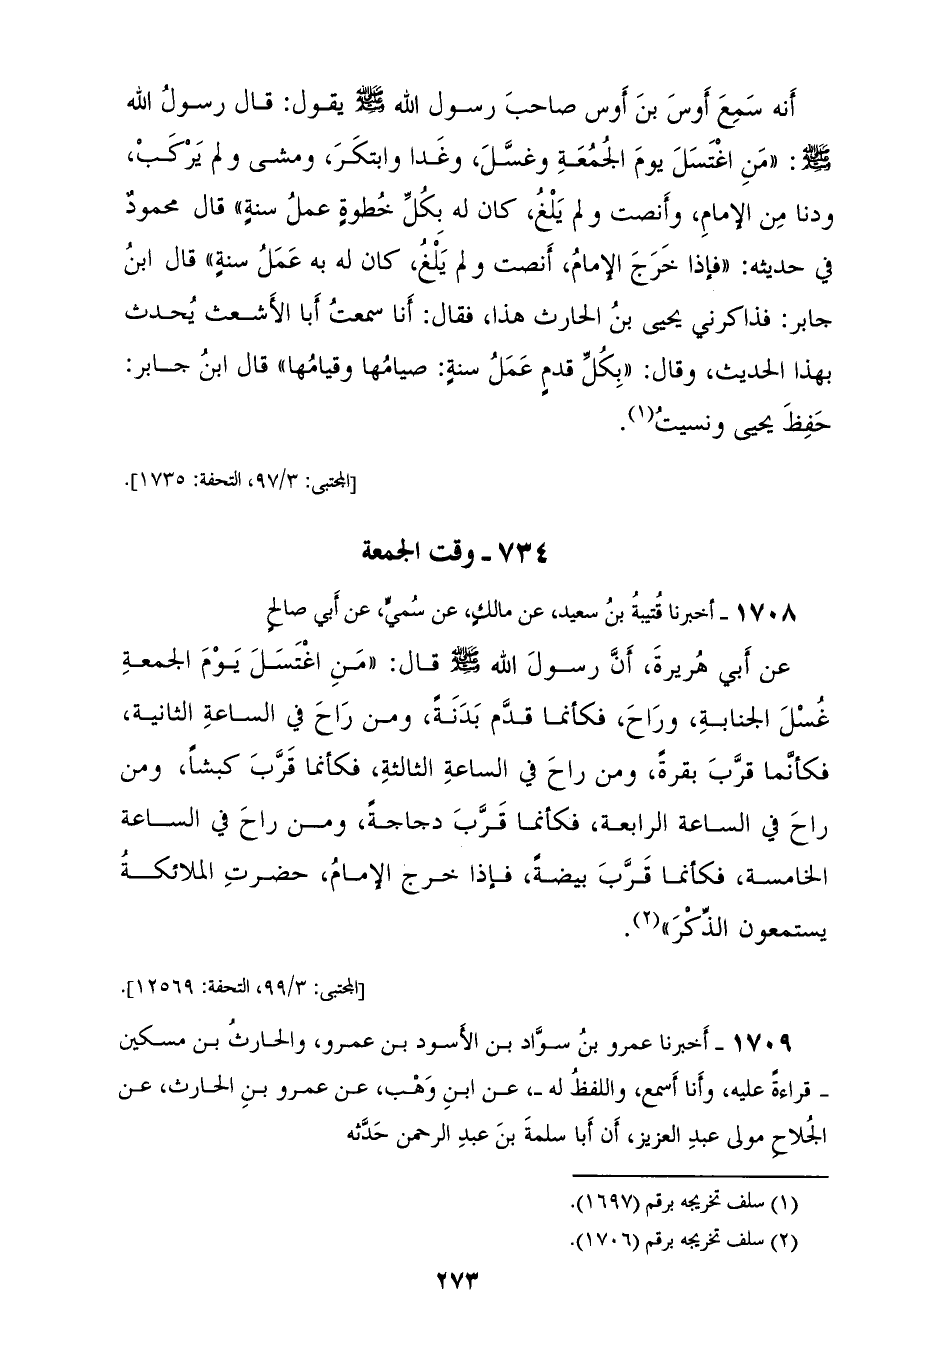 أنه سَمِعَ أَوسَ بنَ أَوس صاحبَ رسول الله ﷺ يقول: قال رسولُ الله
ﷺ: «مَنِ اغْتَسَلَ يومَ الجُمُعَةِ وغسَّلَ، وغَدا وابتكَرَ، ومشى ولم يَرْكَبْ،
ودنا مِن الإمامِ، وأنصت ولم يَلْغُ، كان له بِكُلِّ خُطوةٍ عملُ سنةٍ» قال محمودٌ
في حديثه: «فإذا خَرَجَ الإمامُ، أنصت ولم يَلْغُ، كان له به عَمَلُ سنةٍ» قال ابنُ
جابر: فذاكرني يحيى بنُ الحارث هذا، فقال: أنا سمعتُ أبا الأشعث يُحدث
بهذا الحديث، وقال: «بِكُلِّ قدمٍ عَمَلُ سنةٍ: صيامُها وقيامُها» قال ابنُ جابر:
حَفِظَ يحيى ونسيتُ(١).
[المجتبى: ٩٧/٣، التحفة: ١٧٣٥].
٧٣٤ ـ وقت الجمعة
١٧٠٨ ـ أخبرنا قُتيبةُ بنُ سعيد، عن مالكٍ، عن سُميٍّ، عن أبي صالحٍ
عن أبي هُريرةَ، أنَّ رسولَ الله ﷺ قال: «مَنِ اغْتَسَلَ يَوْمَ الجمعةِ
غُسْلَ الجنابةِ، ورَاحَ، فكأنما قدَّم بَدَنَةً، ومن رَاحَ في الساعةِ الثانية،
فكأنَّما قرَّبَ بقرةً، ومن راحَ في الساعةِ الثالثةِ، فكأنما قَرَّبَ كبشاً، ومن
راحَ في الساعة الرابعة، فكأنما قَرَّبَ دجاجةً، ومن راحَ في الساعة
الخامسة، فكأنما قَرَّبَ بيضةً، فإذا خرج الإمامُ، حضرتِ الملائكةُ
يستمعون الذِّكْرَ»(٢).
[المجتبى: ٩٩/٣، التحفة: ١٢٥٦٩].
١٧٠٩ ـ أخبرنا عمرو بنُ سوَّاد بن الأسود بن عمرو، والحارثُ بن مسكين
ـ قراءةً عليه، وأنا أسمع، واللفظُ له ـ، عن ابنِ وَهْب، عن عمرو بنِ الحارث، عن
الجُلاحِ مولى عبدِ العزيز، أن أبا سلمةَ بنَ عبدِ الرحمن حَدَّثه
(١) سلف تخريجه برقم (١٦٩٧).
(٢) سلف تخريجه برقم (١٧٠٦).
٢٧٣